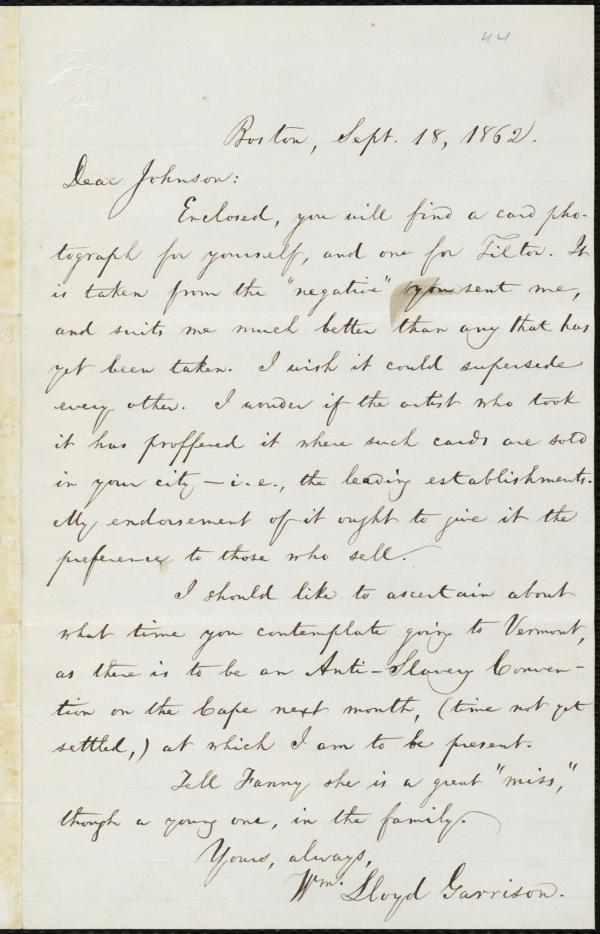 44
Boston, Sept. 18, 1862.
Dear Johnson:
Enclosed, you will find a card pho-
tograph for yourself, and one for Tilton. It
is taken from the "negative" you sent me,
and suits me much better than any that has
yet been taken. I wish it could supersede
every other. I wonder if the artist who took
it has proffered it where such cards are sold
in your city — i. e., the leading establishments.
My endorsement of it ought to give it the
preference to those who sell.
I should like to ascertain about
what time you contemplate going to Vermont,
as there is to be an Anti-Slavery Conven-
tion on the Cape next month, (time not yet
settled,) at which I am to be present.
Tell Fanny she is a great "miss,"
though a young one, in the family.
Yours, always,
Wm. Lloyd Garrison.